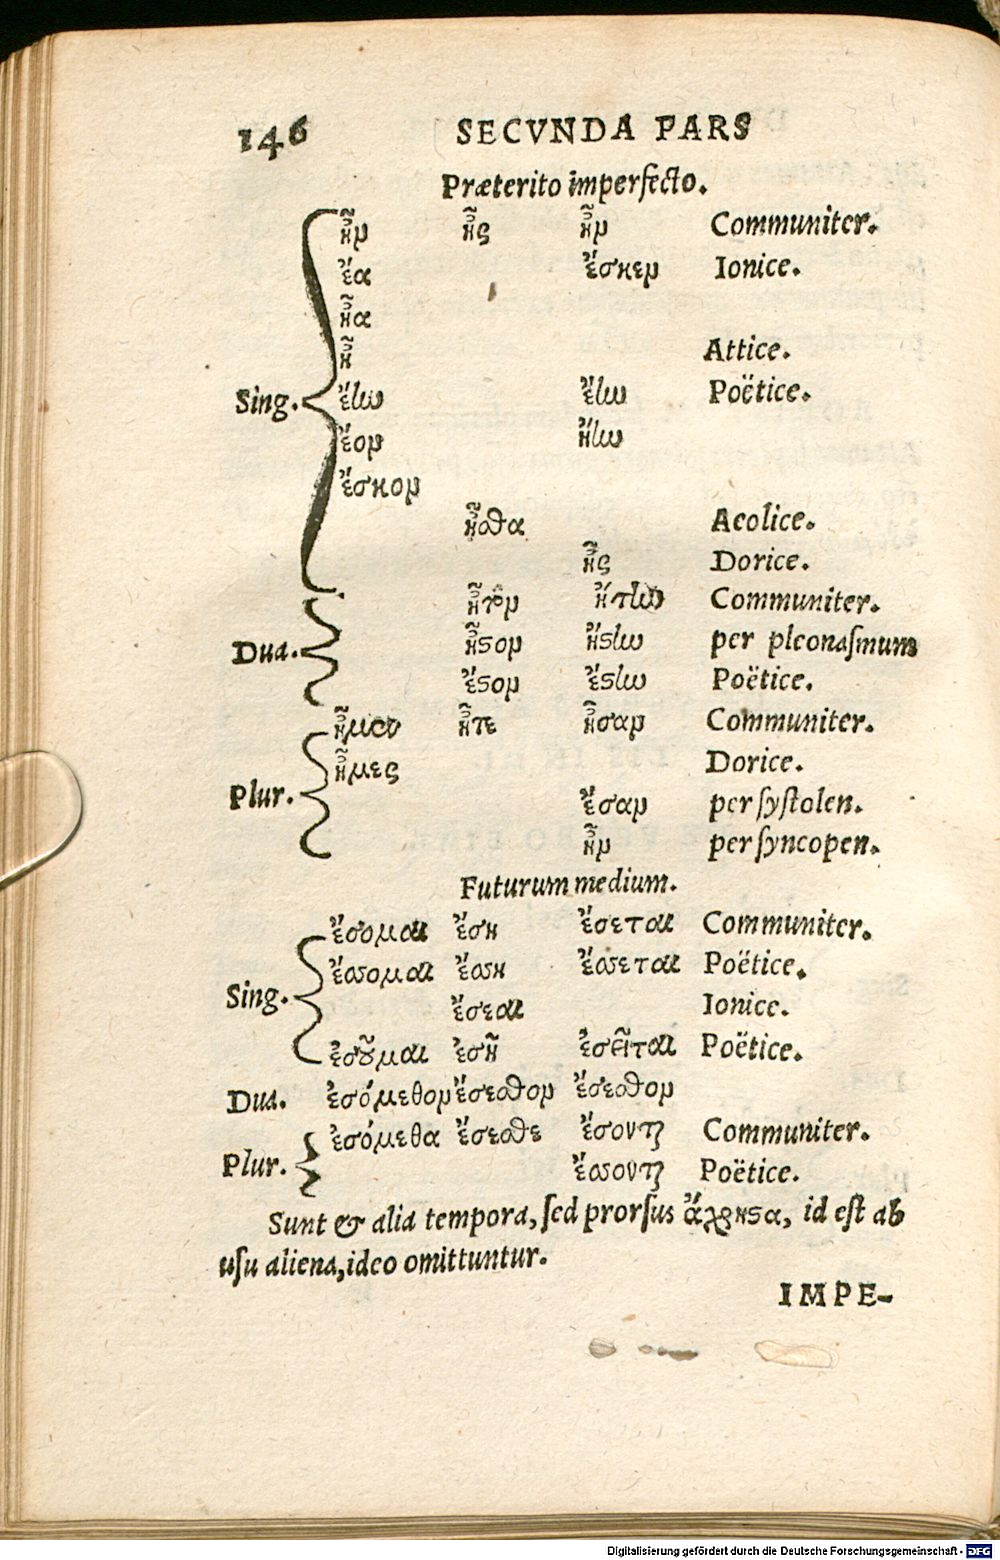 146 SECVNDA PARS
Præterito imperfecto.
ἦν ἦς ἦν Communiter.
ἔα ἔσκεν Ionice.
ἦα
ἦ Attice.
Sing. ἔlω ἔlω Poëtice.
ἔον ἤlω
ἔσκον
ἦσθα Aeolice.
ἦς Dorice.
ἦτον ἤτlω Communiter.
Dua. ἦστον ἤστlω per pleonasmum
ἔστον ἔστlω Poëtice.
ἦμεν ἦτε ἦσαν Communiter.
ἦμες Dorice.
Plur. ἔσαν per systolen.
ἦν per syncopen.
Futurum medium.
ἔσομαι ἔση ἔσεται Communiter.
ἔσσομαι ἔσση ἔσσεται Poëtice.
Sing. ἔσεαι Ionice.
ἐσοῦμαι ἐσῆ ἐσεῖται Poëtice.
Dua. ἐσόμεθον ἔσεσθον ἔσεσθον
ἐσόμεθα ἔσεσθε ἔσονται Communiter.
Plur. ἔσσονται Poëtice.
Sunt & alia tempora, sed prorsus ἄχρηστα, id est ab
usu aliena, ideo omittuntur.
IMPE-
Digitalisierung gefördert durch die Deutsche Forschungsgemeinschaft - DFG